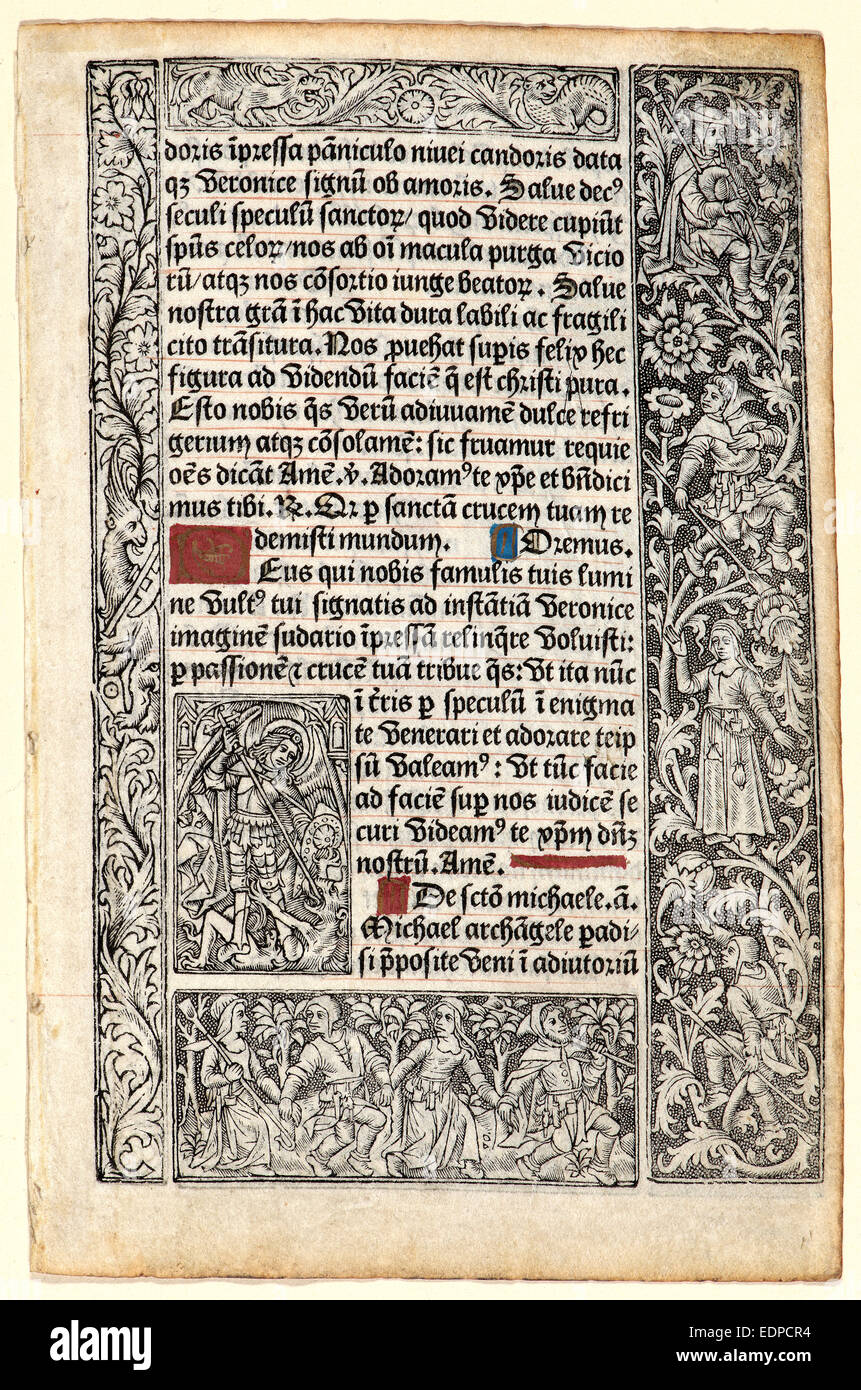 doris īpressa pāniculo niuei candoris data
qꝫ Veronice signū ob amoris. Salue decꝰ
seculi speculū sanctoꝝ/ quod Videre cupiūt
spūs celoꝝ/nos ab oī macula purga Vicio
rū/atqꝫ nos cōsortio iunge beatoꝝ. Salue
nostra grā ī hac Vita dura labili ac fragili
cito trāsitura. Nos ꝓuehat suꝑis felix hec
figura ad Videndū faciē q̄ est christi pura.
Esto nobis q̄s Verū adiuuamē dulce refri
gerium atqꝫ cōsolamē: sic fruamur requie
oēs dicāt Amē. v̄. Adoramꝰ te xp̄e et bn̄dici
mus tibi. ℟. Qꝛ ꝑ sanctā crucem tuam re
demisti mundum. Oremus.
Eus qui nobis famulis tuis lumi
ne Vultꝰ tui signatis ad instātiā Veronice
imaginē sudario īpressā relinq̄re Voluisti:
ꝑ passionē ⁊ crucē tuā tribue q̄s: Vt ita nūc
ī t̄ris ꝑ speculū ī enigma
te Venerari et adorare teip
sū Valeamꝰ: Vt tūc facie
ad faciē suꝑ nos iudicē se
curi Videamꝰ te xp̄m dn̄ꝫ
nostrū. Amē.
De sctō michaele. a.
Michael archāgele ꝑadi/
si p̄posite Veni ī adiutoriū
alamy
alamy stock photo
EDPCR4
www.alamy.com